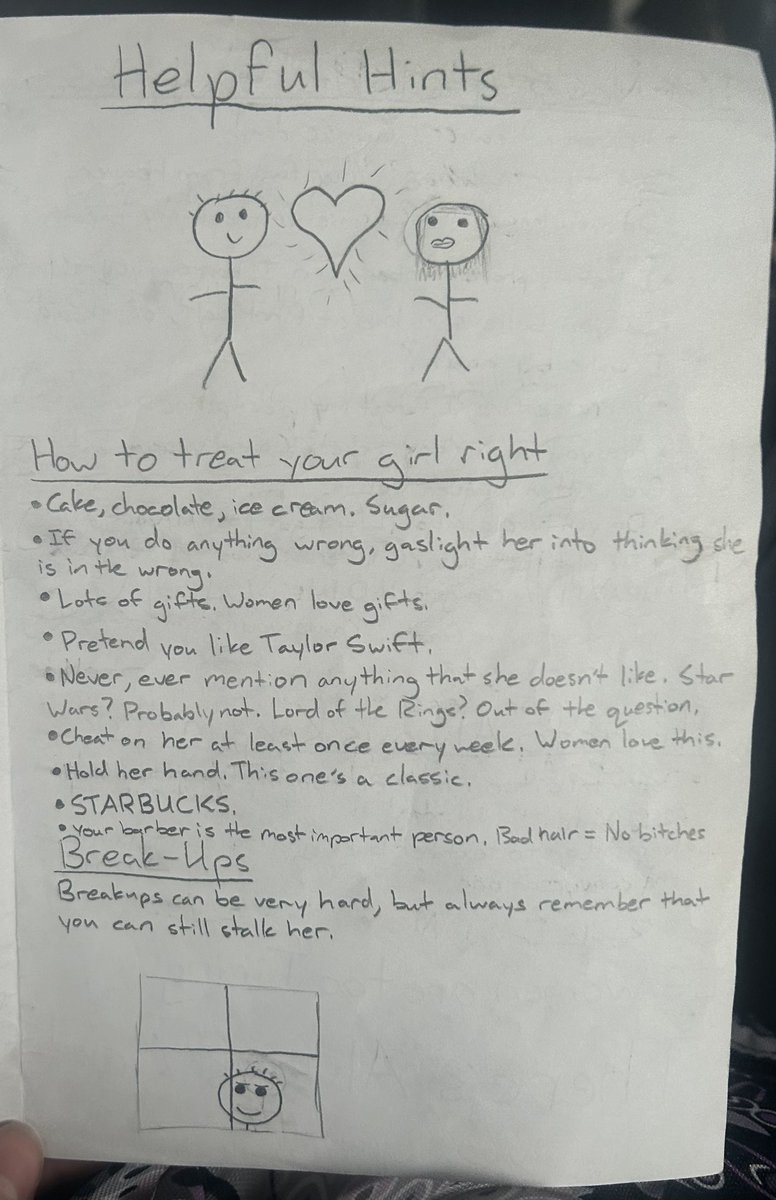 Helpful Hints
How to treat your girl right
• Cake, chocolate, ice cream. Sugar.
• If you do anything wrong, gaslight her into thinking she
is in the wrong.
• Lots of gifts. Women love gifts.
• Pretend you like Taylor Swift.
• Never, ever mention anything that she doesn't like. Star
Wars? Probably not. Lord of the Rings? Out of the question.
• Cheat on her at least once every week. Women love this.
• Hold her hand. This one's a classic.
• STARBUCKS.
• Your barber is the most important person. Bad hair = No bitches
Break-Ups
Breakups can be very hard, but always remember that
you can still stalk her.